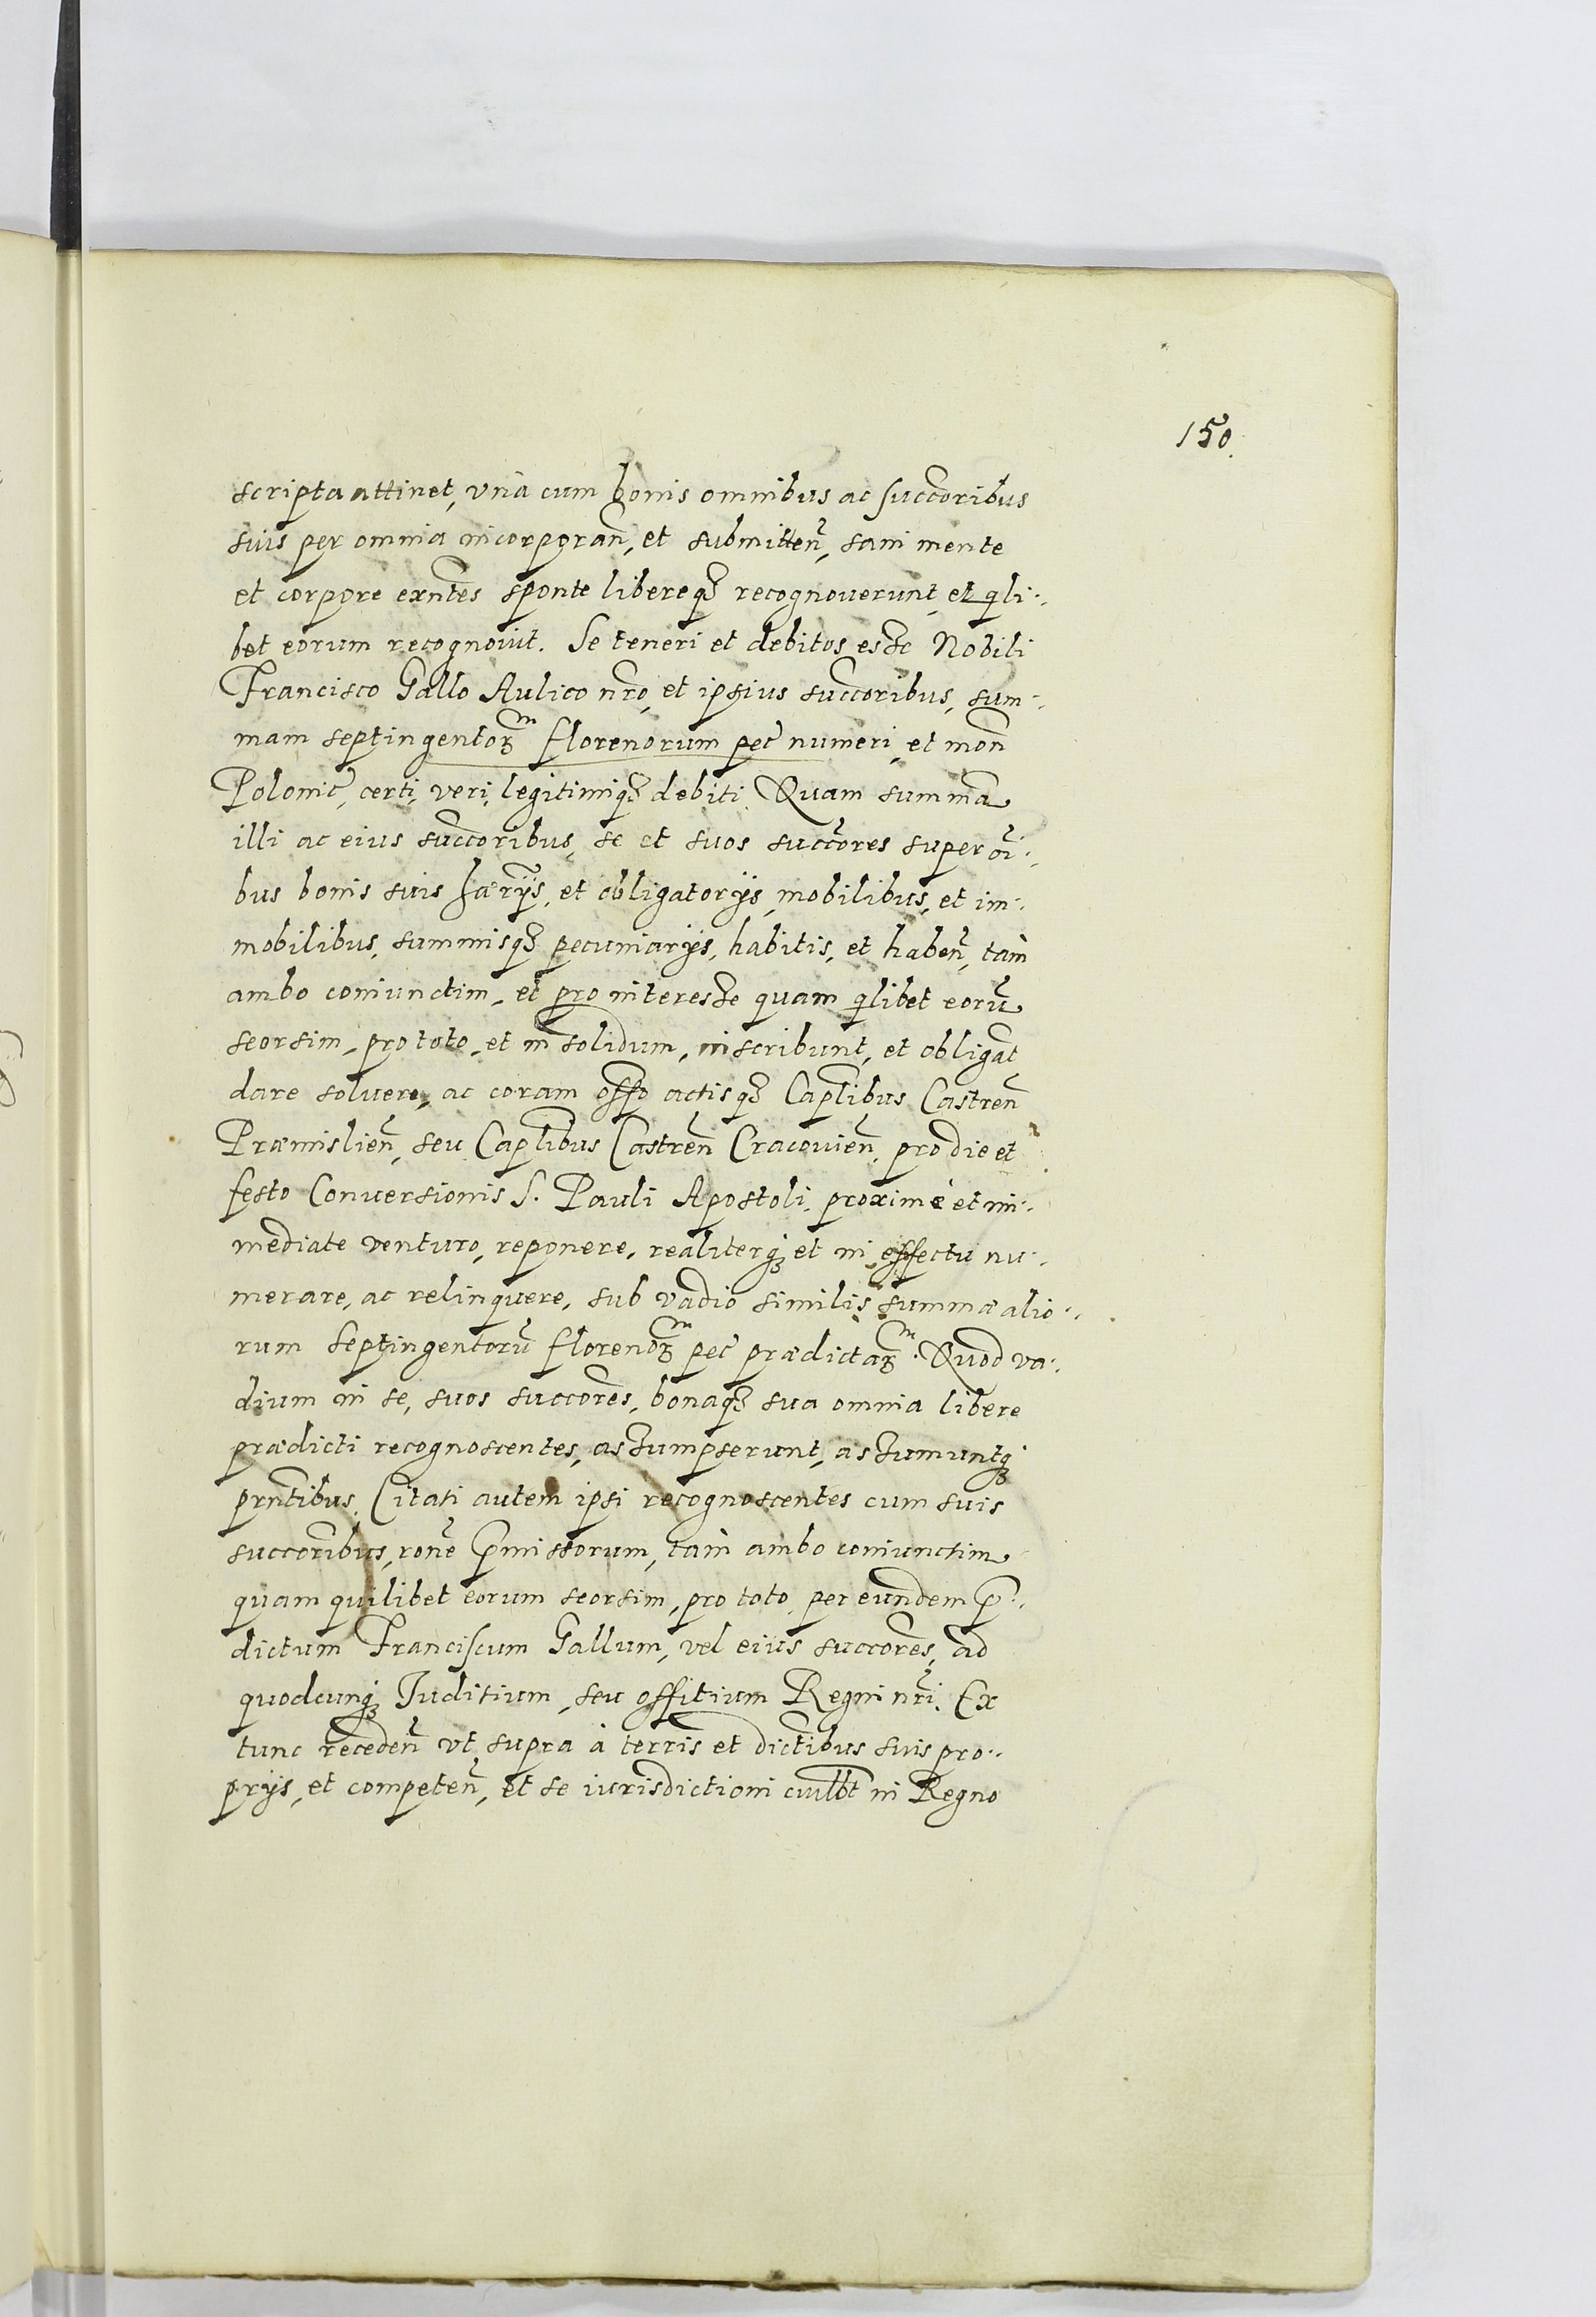 150.
scripta attinet, vnà cum bonis omnibus ac succoribus
suis per omnia incorporañ, et submitteñ, sani mente
et corpore exñtes sponte libereq3 recognouerunt, et qli-
bet eorum recognouit. Se teneri et debitos esse Nobili
Francisco Gallo Aulico nrõ, et ipsius succoribus, sum-
mam septingentorꝫ florenorum pec̃ numeri, et moñ
Polonic̃, certi, veri, legitimiq3 debiti. Quam summã
illi ac eius succoribus, se et suos succores super oĩ-
bus bonis suis hærÿs, et obligatorÿs, mobilibus, et im-
mobilibus, summisq3 pecuniarÿs, habitis, et habeñ, tam
ambo coniunctim, et pro interesse quam qlibet eorũ
seorsim, pro toto, et in solidum, inscribunt, et obligãt
dare soluere, ac coram offõ actisq3 Caplibus Castreñ
Præmislieñ, seu Caplibus Castreñ Cracouieñ, pro die et
festo Conuersionis S. Pauli Apostoli, proximè et im-
mediate venturo, reponere, realiterqꝫ et in effectu nu-
merare, ac relinquere, sub vadio similis summæ alio-
rum septingentorũ florenorꝫ pec̃ prædictarꝫ. Quod va-
dium in se, suos succores, bonaq3 sua omnia libere
prædicti recognoscentes, assumpserunt, assumuntqꝫ
prñtibus. Citati autem ipsi recognoscentes cum suis
succoribus, rõne p̃missorum, tam ambo coniunctim
quam quilibet eorum seorsim, pro toto, per eundem p̃-
dictum Franciscum Gallum, vel eius succores, ad
quodcunqꝫ Juditium, seu offitium Regni nrĩ. Ex
tunc recedeñ vt supra à terris et dictibus suis pro-
prÿs, et competeñ, et se iurisdictioni cuilbt in Regno